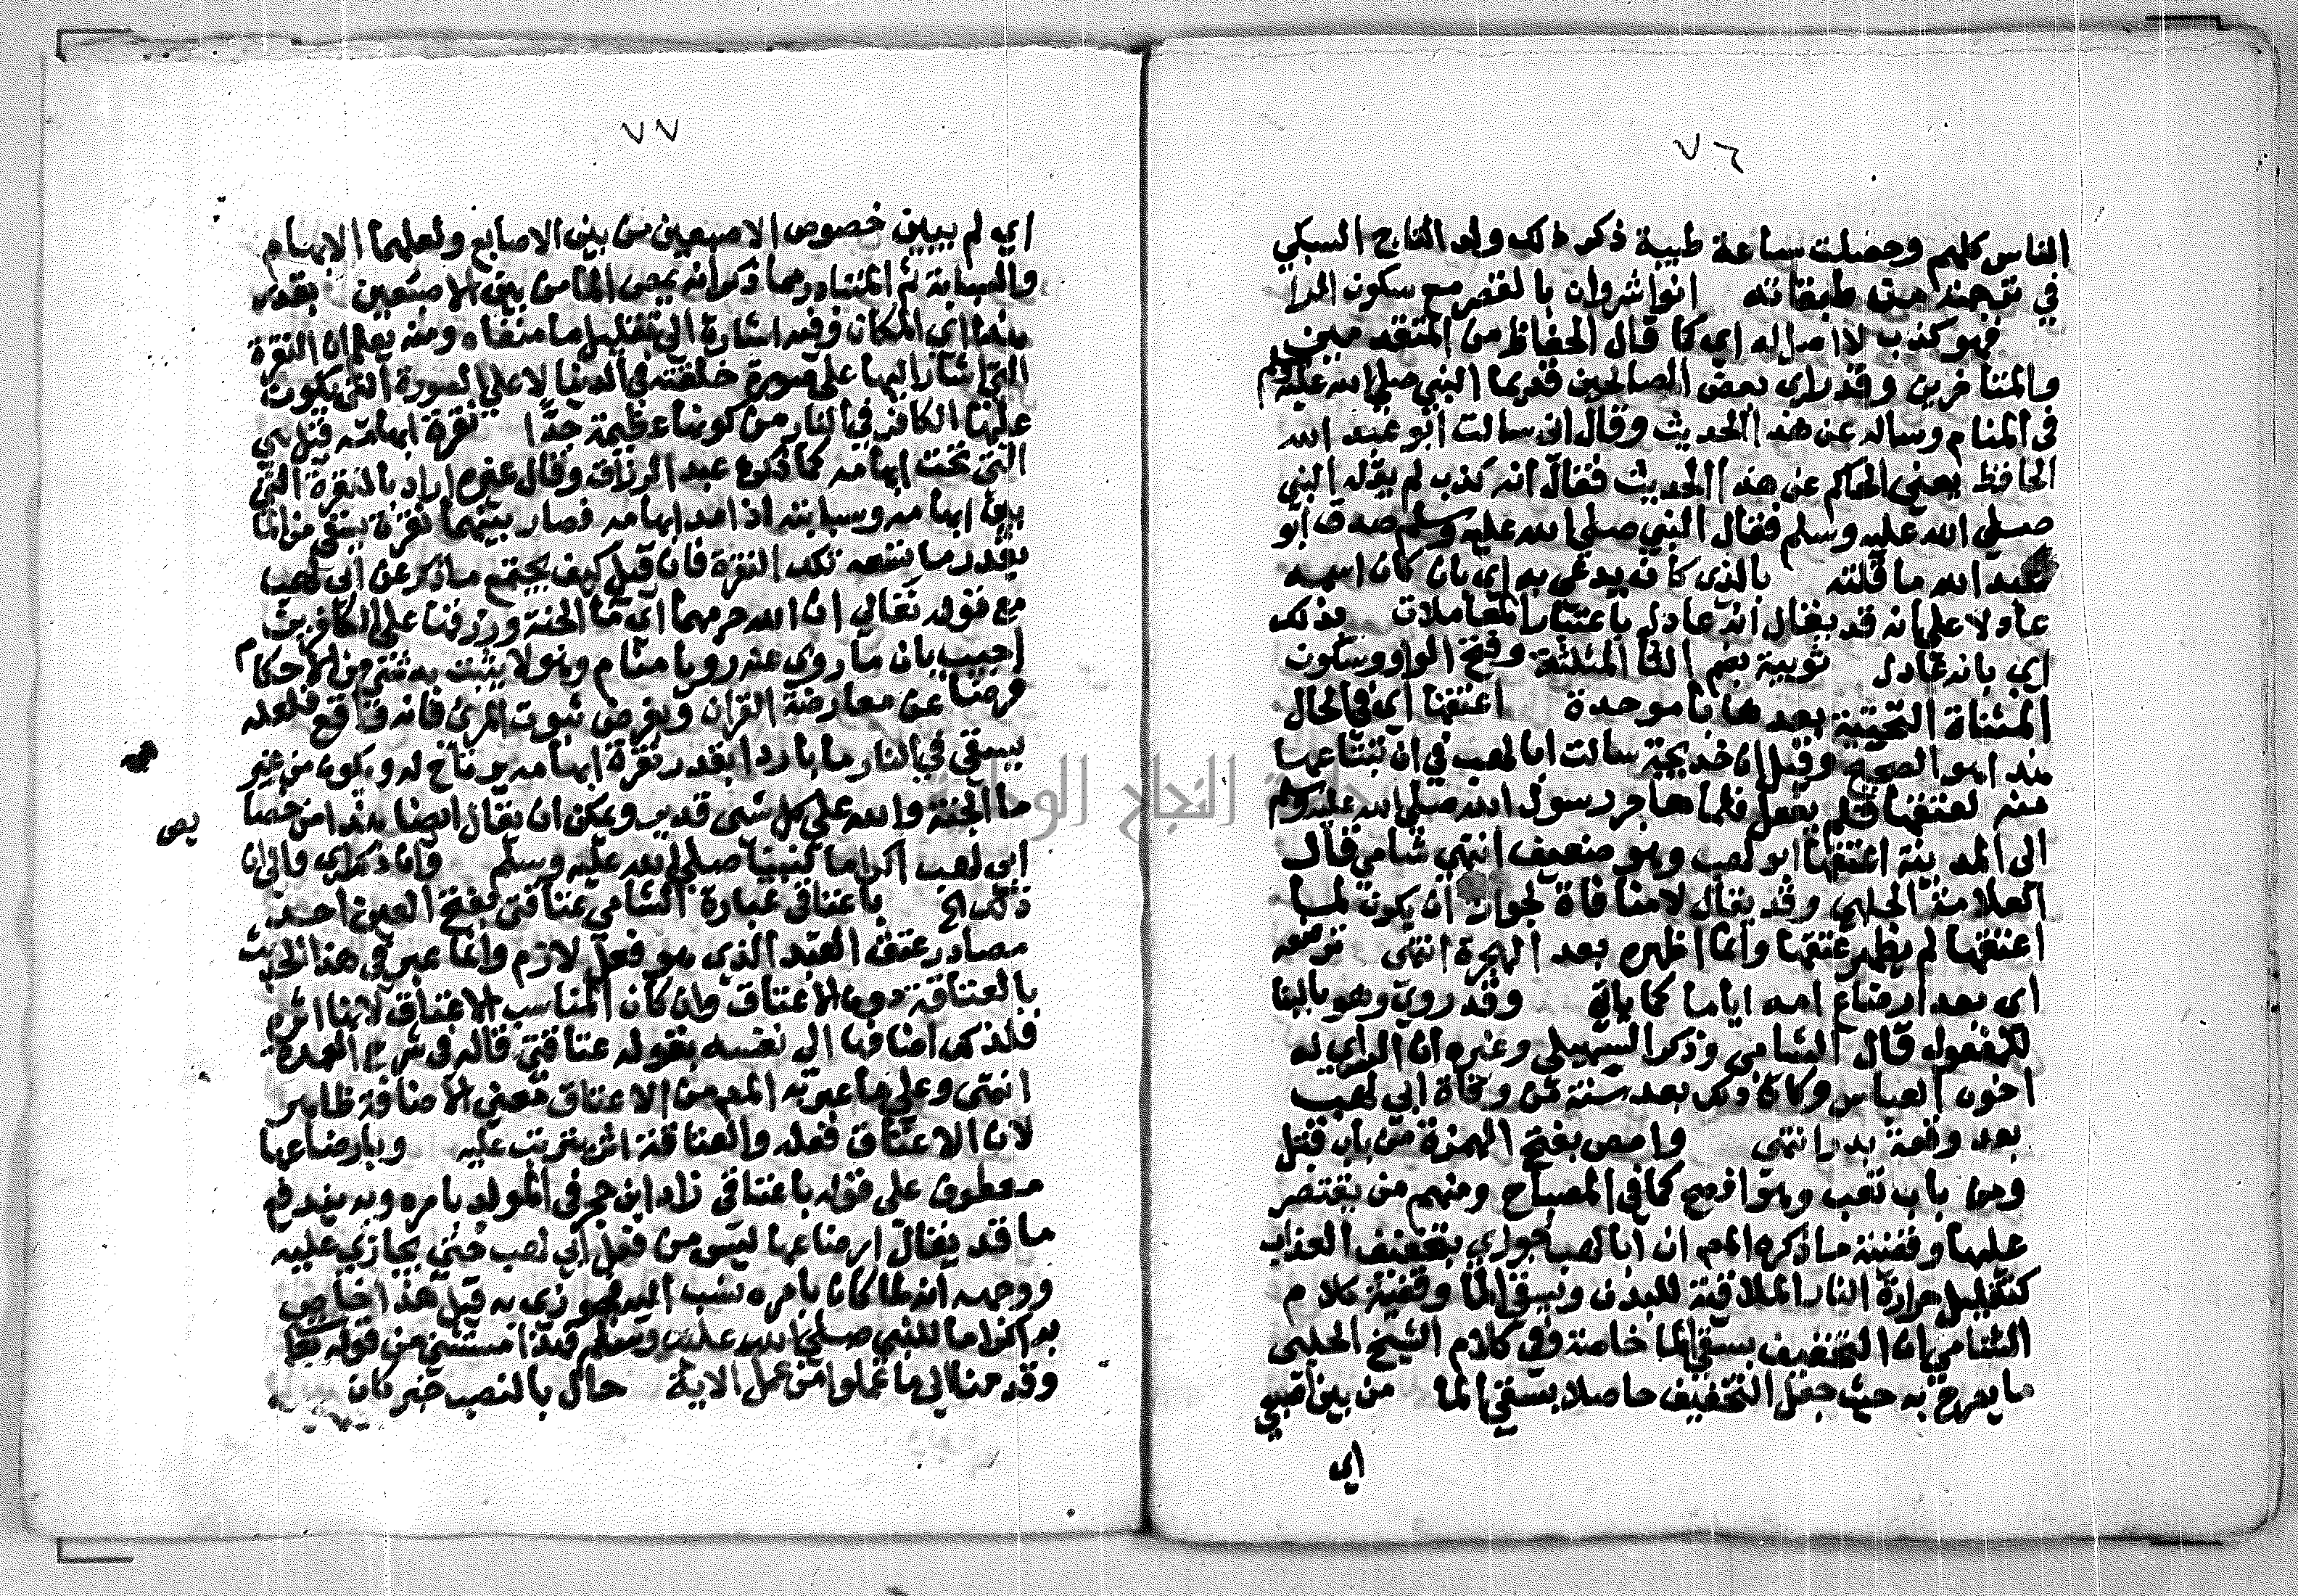 ٧٦
الناس كلهم وحصلت ساعة طيبة ذكر ذلك ولده التاج السبكي
في ترجمته من طبقاته انوا شروان بالقصر مع سكون الرا
فهو كذب لا اصل له اي كما قال الحفاظ من المتقدمين
والمتاخرين وقد راى بعض الصالحين قديما النبي صلى الله عليه وسلم
في المنام وساله عن هذا الحديث وقال انى سالت ابو عبد الله
الحافظ يعنى الحاكم عن هذا الحديث فقال انه كذب لم يقله النبي
صلى الله عليه وسلم فقال النبي صلى الله عليه وسلم صدق ابو
عبد الله ما قلته بالذى كان يدعى به اي بان كان اسمه
عادلا على انه قد يقال انه عادل باعتبار المعاملات بذلك
اي بانه عادل ثويبة بضم الثا المثلثة وفتح الواو وسكون
المثناة التحتية بعدها با موحدة اعتقها اي في الحال
هذا هو الصحيح وقيل ان خديجة سالت ابا لهب في ان تبتاعها
منه لتعتقها فلم يفعل فلما هاجر رسول الله صلى الله عليه وسلم
الى المدينة اعتقها ابو لهب وهو ضعيف انتهى شامي قال
العلامة الحلبي وقد يقال لا منافاة لجواز ان يكون لما
اعتقها لم يظهر عتقها وانما اظهره بعد الهجرة انتهى ترضعه
اى بعد ارضاع امه اياما كما ياتي وقد روى وهو بالبنا
للمفعول قال الشامي وذكر السهيلي وغيره ان الراي له
اخوه العباس وكان ذلك بعد سنة من وفاة ابي لهب
بعد وقعة بدر انتهى وامص بفتح الهمزة من باب قتل
ومن باب تعب وهو افصح كما في المصباح ومنهم من يقتصر
عليها وقضية ما ذكره المص ان ابا لهب جوزي بتخفيف العذاب
كتقليل حرارة النار الملاقية للبدن وبسقي الما وقضية كلام
الشامي ان التخفيف بسقي الما خاصة وفي كلام الشيخ الحلبي
ما يصرح به حيث جعل التخفيف حاصلا بسقي الما من بين اصبعي
اي
٧٧
اي لم يبين خصوص الاصبعين من بين الاصابع ولعلهما الابهام
والسبابة ثم المتبادر مما ذكر انه يمص الما من بين الاصبعين بقدر
هذا اى المكان وفيه اشارة الى تقليل ما سقاه ومنه يعلم ان النقرة
التي اشار اليها على صورة خلقته في الدنيا لا على الصورة التي يكون
عليها الكافر في النار من كونها عظيمة جدًّا نقرة ابهامه قيل هي
التي تحت ابهامه كما ذكره عبد الرزاق وقال غيره اراد بالنقرة التي
بين ابهامه وسبابته اذا مد ابهامه فصار بينهما نقرة يسقى من الما
بقدر ما تسعه تلك النقرة فان قيل كيف يجتمع ما ذكر عن ابي لهب
مع قوله تعالى ان الله حرمهما اي ما الجنة ورزقها على الكافرين
اجيب بان ما روي عنه رويا منام وهو لا يثبت به شئ من الاحكام
فضلا عن معارضة القران وبفرض ثبوت المرئ فانه واقع فلعله
يسقي في النار ما باردا بقدر نقرة ابهامه يرتاح له ويكون من غير
ما الجنة والله على كل شى قدير ويمكن ان يقال ايضا هذا من خصا
يص
ابى لهب اكراما لنبينا صلى الله عليه وسلم وان ذكراي وان
ذلك الخ باعتاقى عبارة الشامي عتاقتي بفتح العين احد
مصادر عتق العبد الذى هو فعل لازم وانما عبر في هذا الحديث
بالعتاقة دون الاعتاق وان كان المناسب الاعتاق لانها اثره
فلذلك اضافها الى نفسه بقوله عتاقتي قاله فى شرح العمدة
انتهى وعلى ما عبر به المص من الاعتاق فمعنى الاضافة ظاهر
لان الاعتاق فعله والعتاقة اثر يترتب عليه وبارضاعها
معطوف على قوله باعتاقى زاد ابن حجر فى المولد بامره وبه يندفع
ما قد يقال ارضاعها ليس من فعل ابي لهب حتى يجازى عليه
ووجهه انه لما كان بامره نسب اليه فجوزى به قيل هذا خاص
به اكراما للنبي صلى الله عليه وسلم فهذا مستثنى من قوله تعالى
وقدمنا الى ما عملوا من عمل الاية حال بالنصب خبر كان